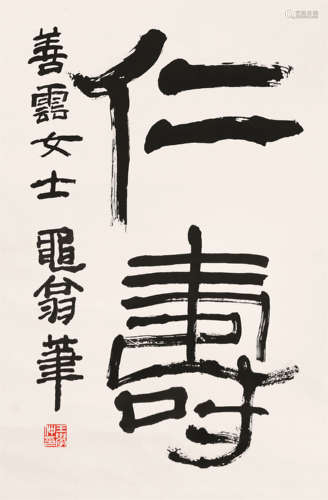 仁壽
善雲女士 黽翁筆